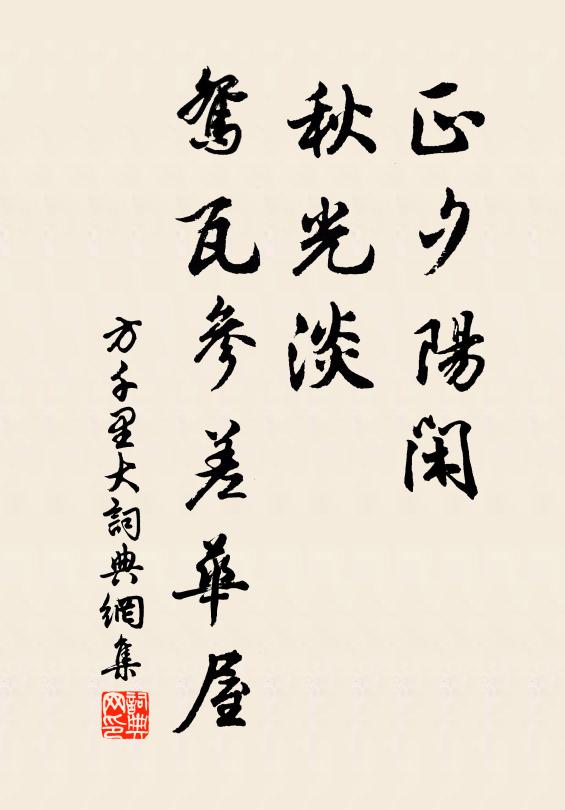 正夕陽閑
秋光淡
鴛瓦參差華屋
方千里大詞典網集
詞典网印